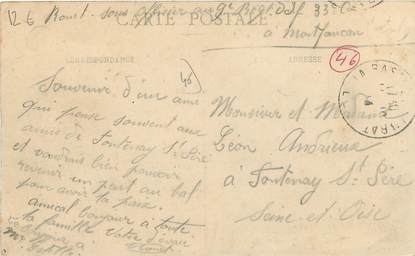 12-6 Rouet - sous officier au 9e Regt d'Inf 33e Cie
CARTE POSTALE
à Montauban
CORRESPONDANCE
ADRESSE
46
46
Souvenir d'un ami
qui pense souvent aux
amis de Fontenay St Père
et voudrais bien pouvoir
revenir un peu au bal
pour avoir la paix.
amical bonjour à toute
la famille Votre
Bonjour à
Mr
Monsieur et Madame
Léon Andrieux
à Fontenay St Père
Seine-et-Oise